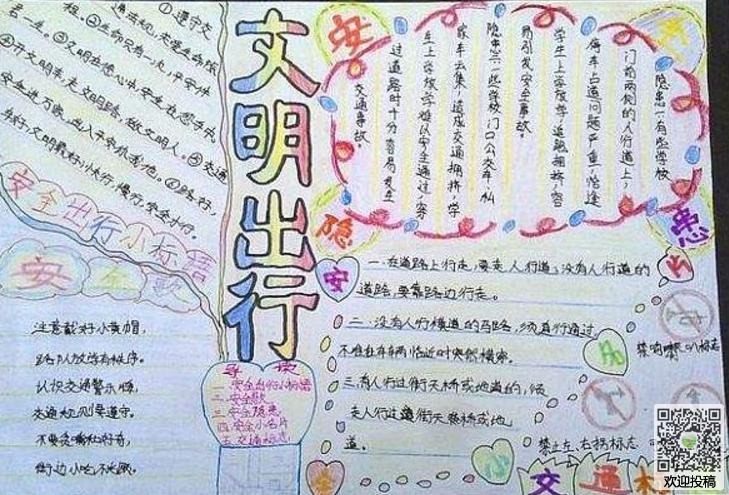 ① 遵守交
通法规,关爱生命旅
程。②生命只有一次,平安伴
君一生。③文明在您心中,安全在您手中。
④开文明车,走文明路,做文明人。⑤交通
安全进万家,
生行,文明最好;
安全出行小标语
安全歌
注意戴好小黄帽,
路队放饰有秩序。
认识交通警示牌,
交通规则要遵守。
街边小吃不光顾。
文明出行
导读
一.安全出行小标语
二.安全歌
三.安全隐患
四.安全小名片
五.交通标志
安
全
隐
患
隐患一有些学校
门前两侧的人行道上,
每车占道问题严重,恰逢
学生上学放学,道路拥挤,容
易引发安全事故。
隐患二一些学校门口公交车,私
家车云集,造成交通拥挤,学
生上学放学难以安全通过,穿
过道路时十分容易发生
交通事故。
一.在道路上行走,要走人行道;没有人行道的
道路,要靠路边行走。
二.没有人行横道的马路,须直行通过,
不准在车辆临近时突然横穿。
三.有人行过街天桥或地道的,须
走人行过道街天桥或地
道。
安
全
小
名
片
禁鸣喇叭标志
禁止左、右拐标志
交通标
欢迎投稿